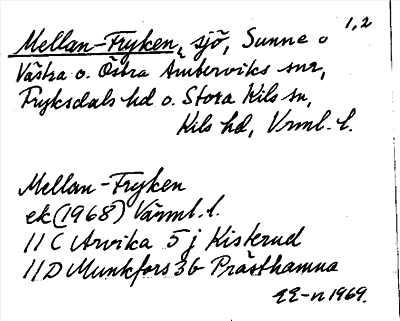 1,2
Mellan-Fryken, sjö, Sunne o
Västra o. Östra Ämterviks snr,
Fryksdals hd o. Stora Kils sn,
Kils hd, Vrml. l.
Mellan-Fryken
ek (1968) Värml. l.
11 C Arvika 5 j Kisterud
11 D Munkfors 3 b Prästhamna
1969.